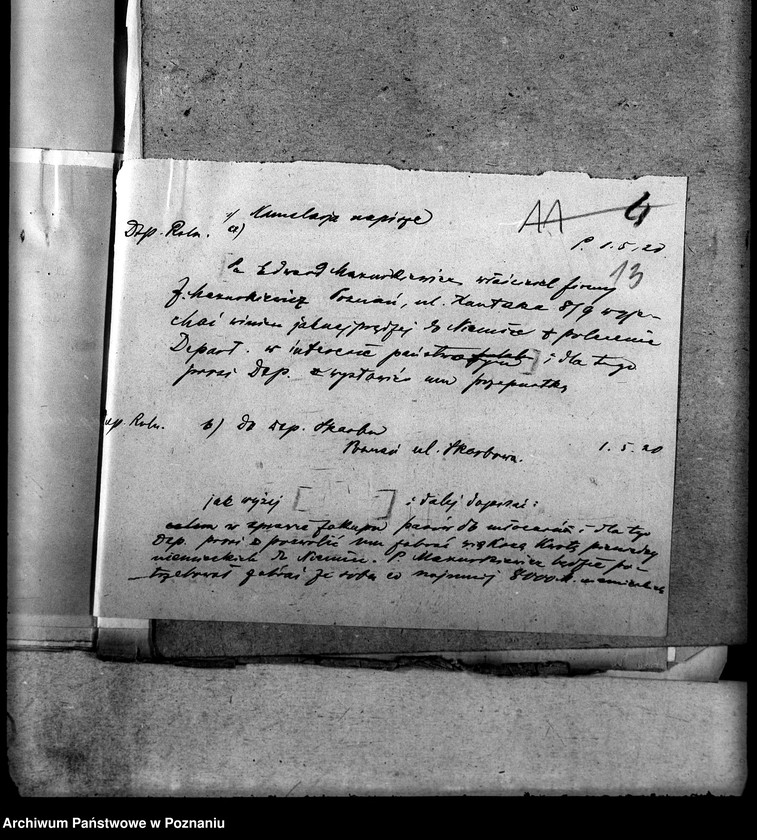 AA 4
1/ Kancelarja napisze
Dep. Roln. a)
P. 1.5.20
13
Pa Edward Mazurkiewicz właściciel firmy
J. Mazurkiewicz Poznań, ul. Kantaka 8/9 wyje-
chać winien jaknajprędzej do Niemiec z polecenia
Depart. w interesie państwowym] i dla tego
prosi Dep. o wystawienie mu przepustki
Dep. Roln. b) do Dep. Skarbu 1.5.20
Poznań ul. Skarbowa.
jak wyżej [ ] i dalej dopisać:
celem w sprawie zakupu pasów do młocarń i dla tego
Dep. prosi o pozwolić mu zabrać większą kwotę pieniędzy
niemieckich do Niemiec. P. Mazurkiewicz będzie po-
trzebował zabrać ze sobą co najmniej 8000 M. niemieckich
Archiwum Państwowe w Poznaniu